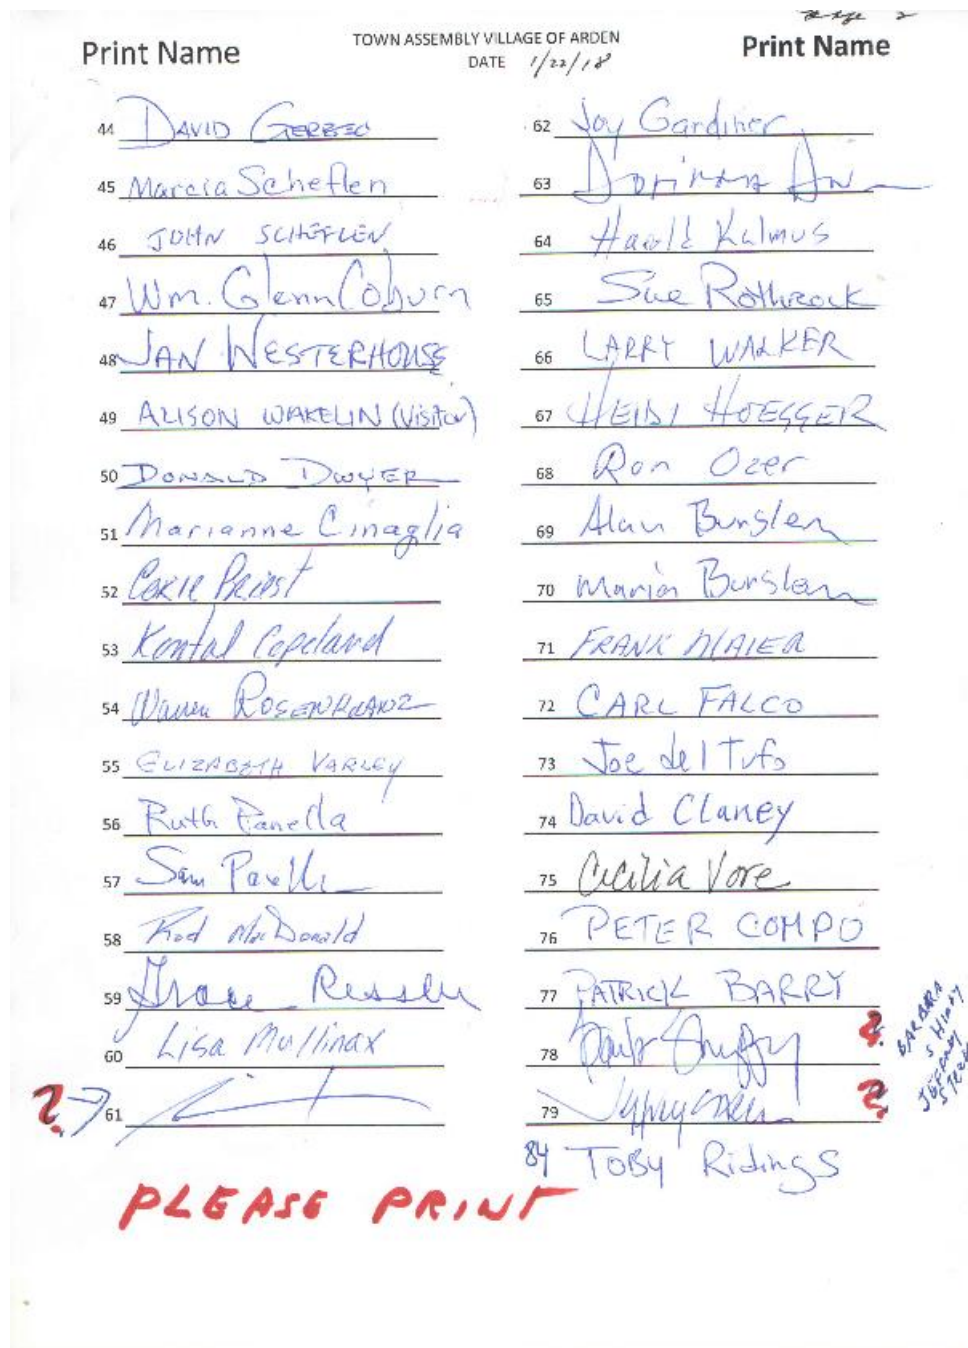 Page 2
Print Name
TOWN ASSEMBLY VILLAGE OF ARDEN
DATE 1/22/18
Print Name
44 DAVID GERBEC
45 Marcia Scheflen
46 JOHN SCHEFLEN
47 Wm. Glenn Coburn
48 JAN WESTERHOUSE
49 ALISON WAKELIN (Visitor)
50 DONALD DWYER
51 Marianne Cinaglia
52 Cokie Priest
53 Kental Copeland
54 Warren ROSENKRANZ
55 ELIZABETH VARLEY
56 Ruth Panella
57 Sam
58 Rod MacDonald
59 Grace Ressler
60 Lisa Mullinax
? 61
62 Joy Gardiner
63
64 Harold Kalmus
65 Sue Rothrock
66 LARRY WALKER
67 HEIDI HOEGGER
68 Ron Ozer
69 Alan Burslem
70 Marion Burslem
71 FRANK MAIER
72 CARL FALCO
73 Joe del Tufo
74 David Claney
75 Cecilia Vore
76 PETER COMPO
77 PATRICK BARRY
78 ?
79 ?
BARBARA
JEFFREY
84 TOBY Ridings
PLEASE PRINT